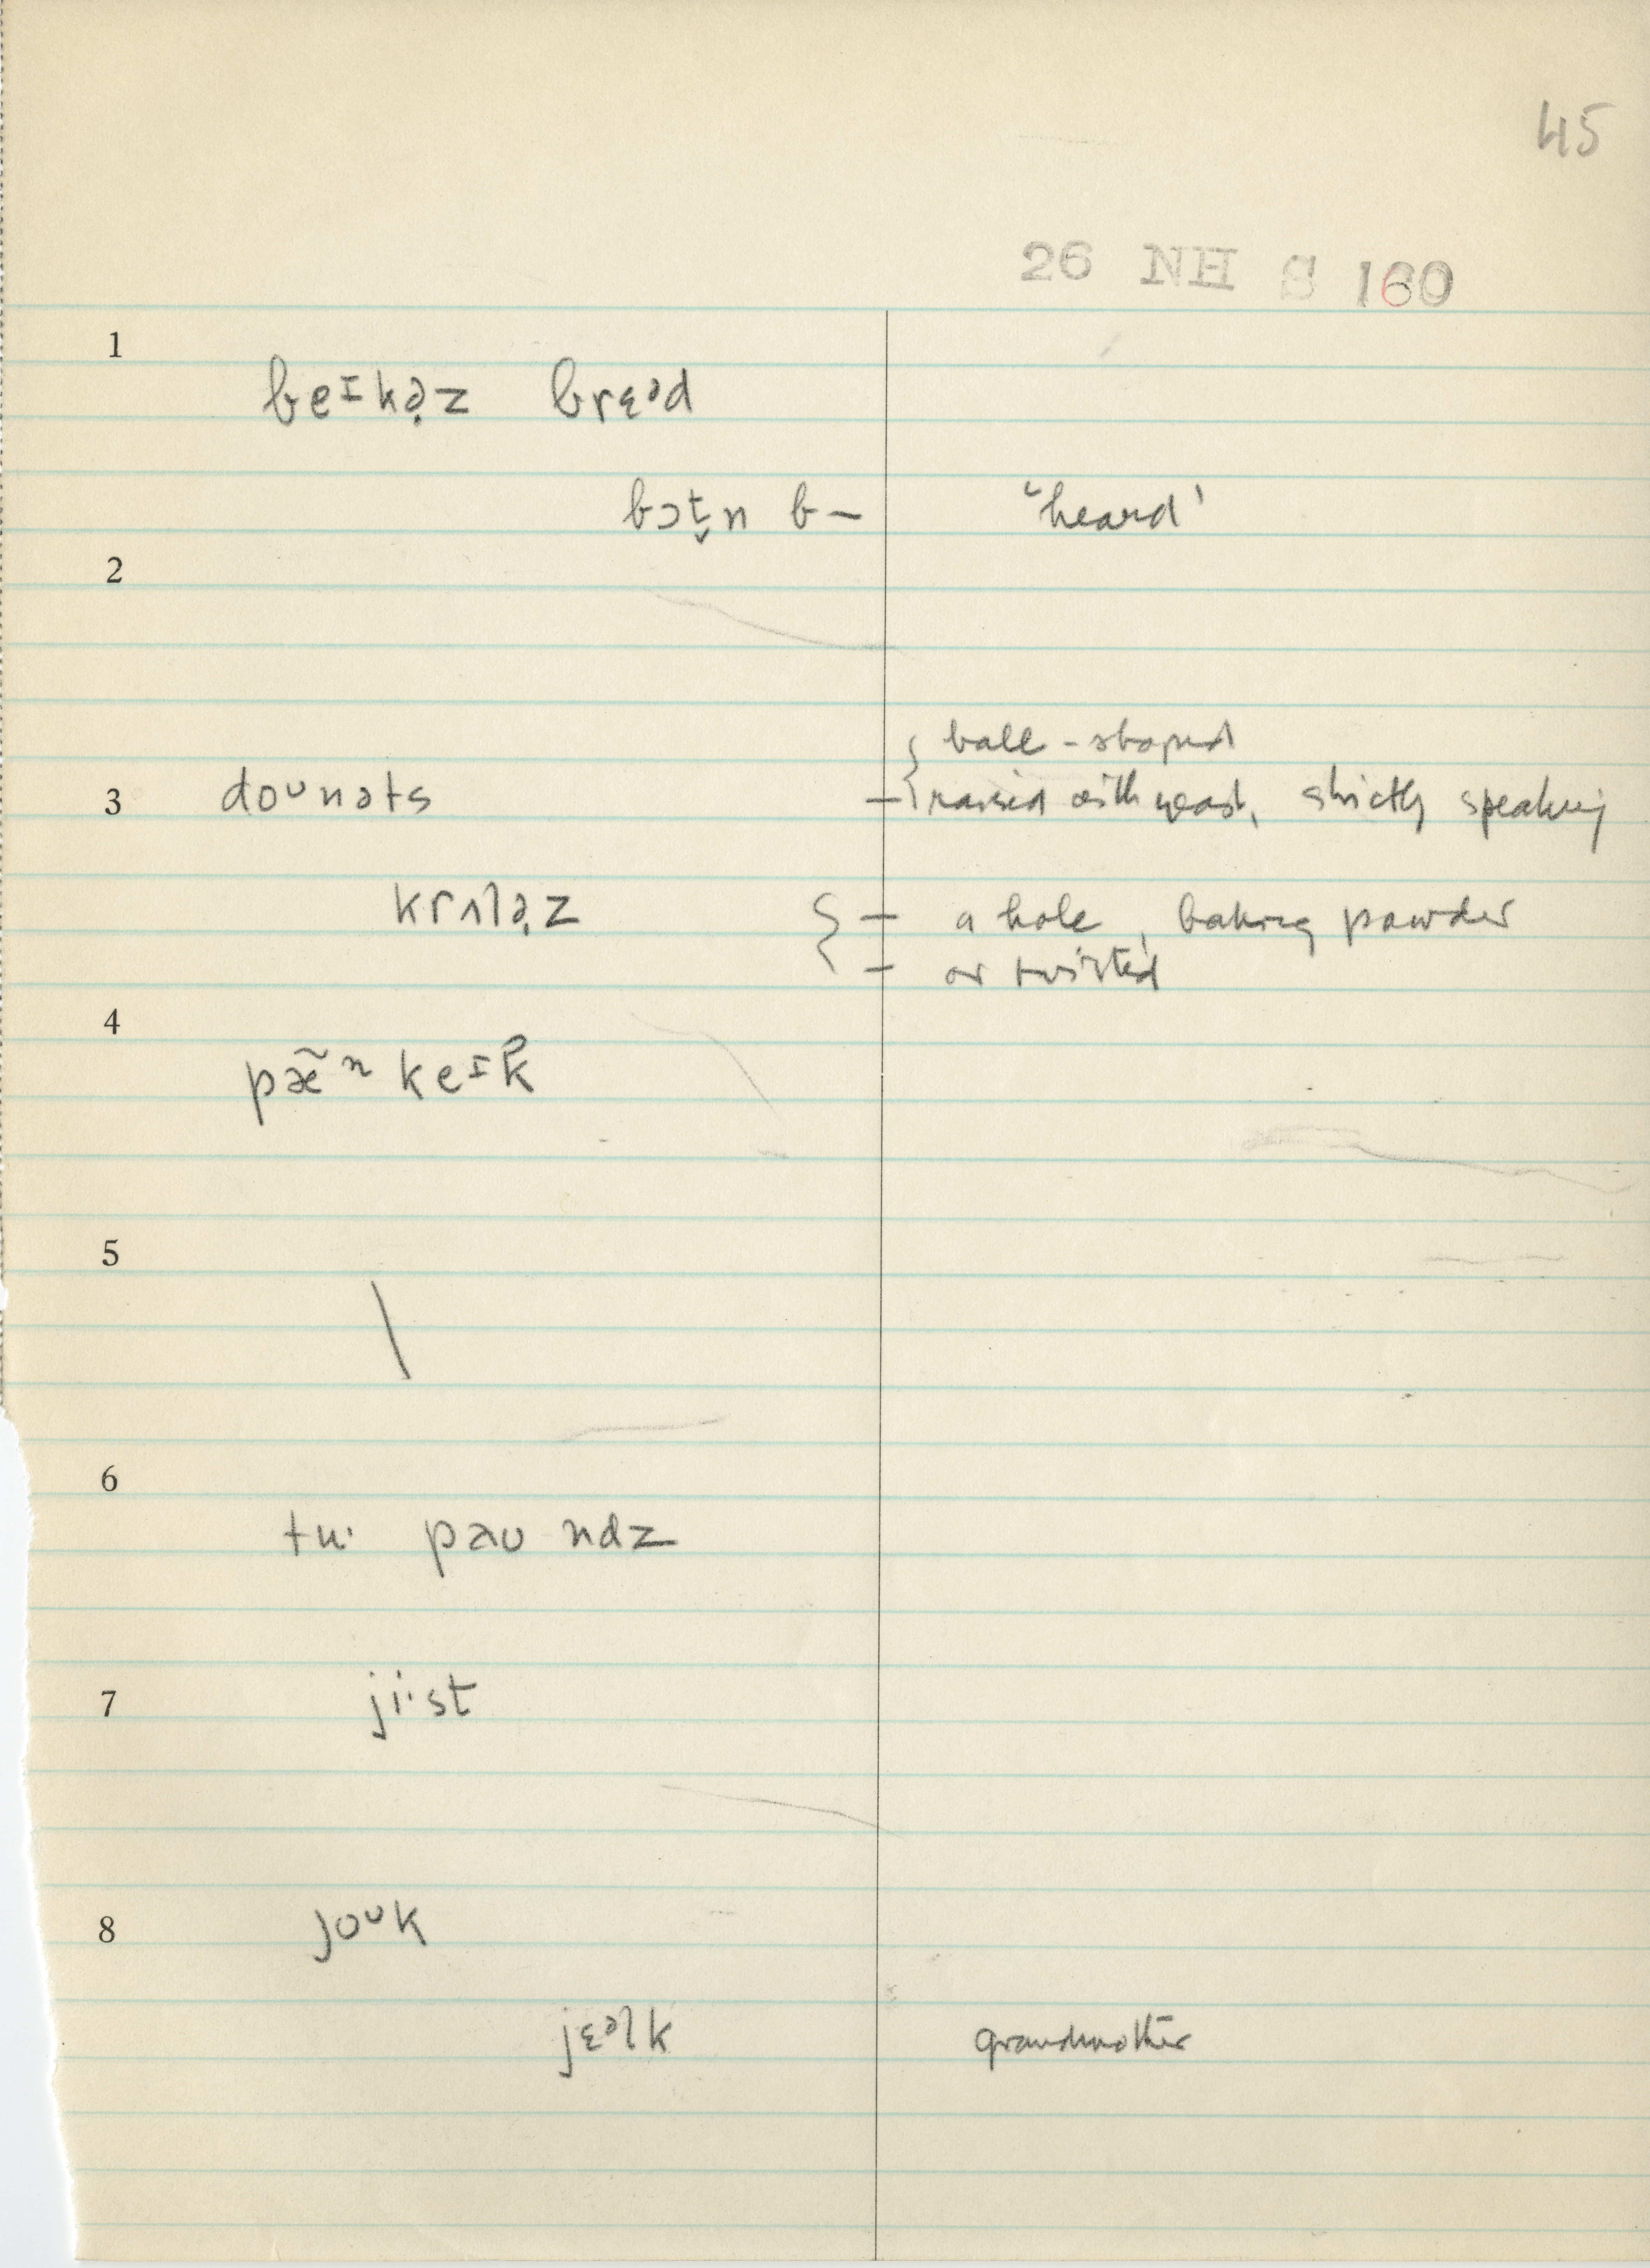 45
26 NH S 160
1
beɪkə̣z brɛᵊd
bɔt̬n b– 'heard'
2
ball-shaped
3 doᴜnəts – raised with yeast, strictly speaking
krʌlə̣z { – a hole, baking powder
– or twisted
4
pæ̃ⁿkeɪk̑
5
\
6
tuˑ paʊndz
7 jiˑst
8 joᴜk
jɛᵊlk grandmother